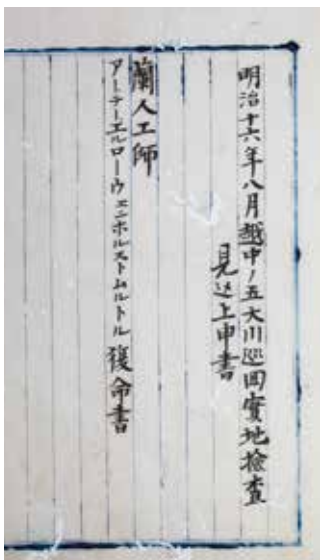 明治十六年八月越中ノ五大川巡回實地撿査
見込上申書
蘭人工師
アーテーエルローウェニホルストムルトル 復命書